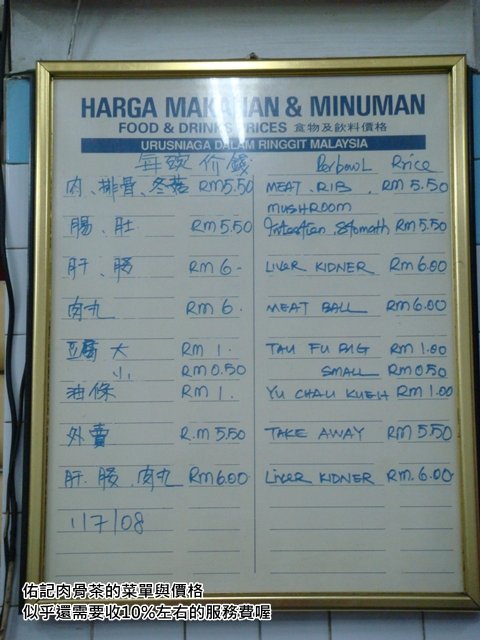 HARGA MAKANAN & MINUMAN
FOOD & DRINKS PRICES 食物及飲料價格
URUSNIAGA DALAM RINGGIT MALAYSIA
每碗 价錢 Perbowl Price
肉、排骨、冬菇 RM5.50 MEAT.RIB. RM 5.50
MUSHROOM
腸、肚 RM5.50 Intestien, Stomath RM 5.50
肝、腰 RM 6- LIVER KIDNER RM 6.00
肉丸 RM 6. MEAT BALL RM 6.00
豆腐 大 RM 1. TAU FU BIG RM 1.00
小 RM 0.50 SMALL RM 0.50
油條 RM 1. YU CHAU KUEH RM 1.00
外賣 R.M 5.50 TAKE AWAY RM 5.50
肝.腰.肉丸 RM 6.00 Liver KIDNER RM.6.00
1/7/08
佑記肉骨茶的菜單與價格
似乎還需要收10%左右的服務費喔